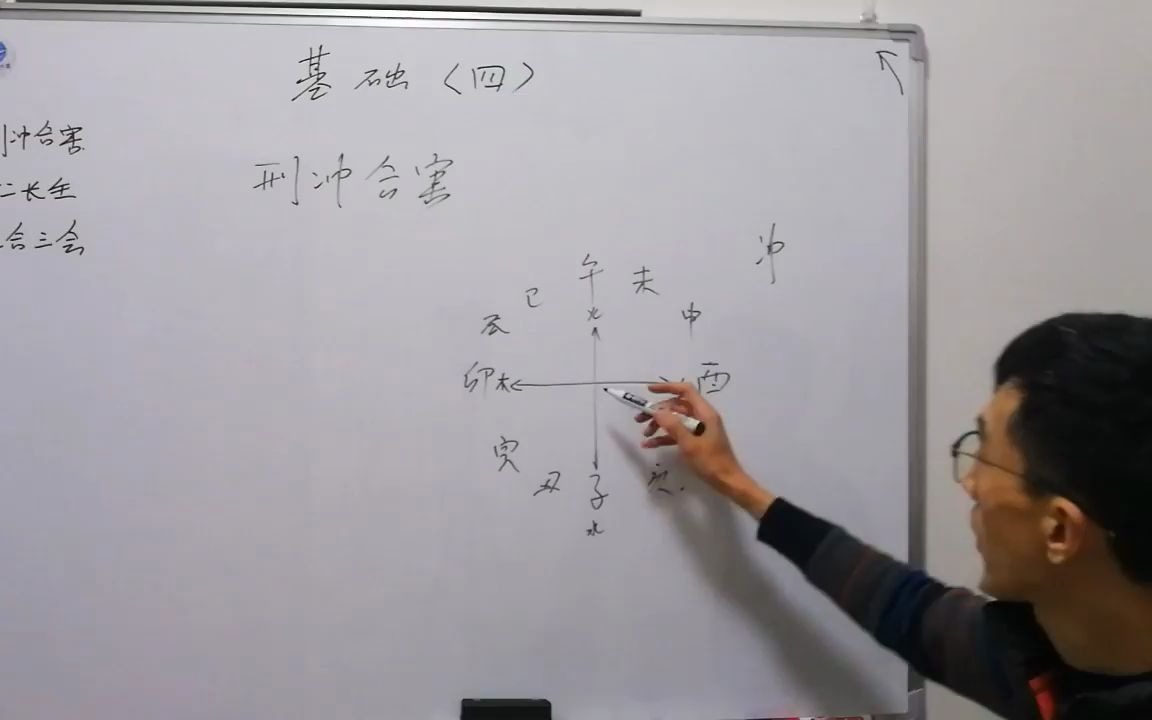 基础（四）
冲合害
二长生
合三会
刑冲合害
冲
午 未
巳 火 申
辰
卯木 酉
寅 丑 子 亥
水